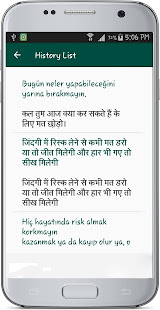 5:06 PM
History List
Bugün neler yapabileceğini
yarına bırakmayın,
कल तुम आज क्या कर सकते हैं के
लिए मत छोड़ो।
जिंदगी में रिस्क लेने से कभी मत डरो
या तो जीत मिलेगी और हार भी गए तो
सीख मिलेगी
जिंदगी में रिस्क लेने से कभी मत डरो
या तो जीत मिलेगी और हार भी गए तो
सीख मिलेगी
Hiç hayatında risk almak
korkmayın
kazanmak ya da kayıp olur ya, o